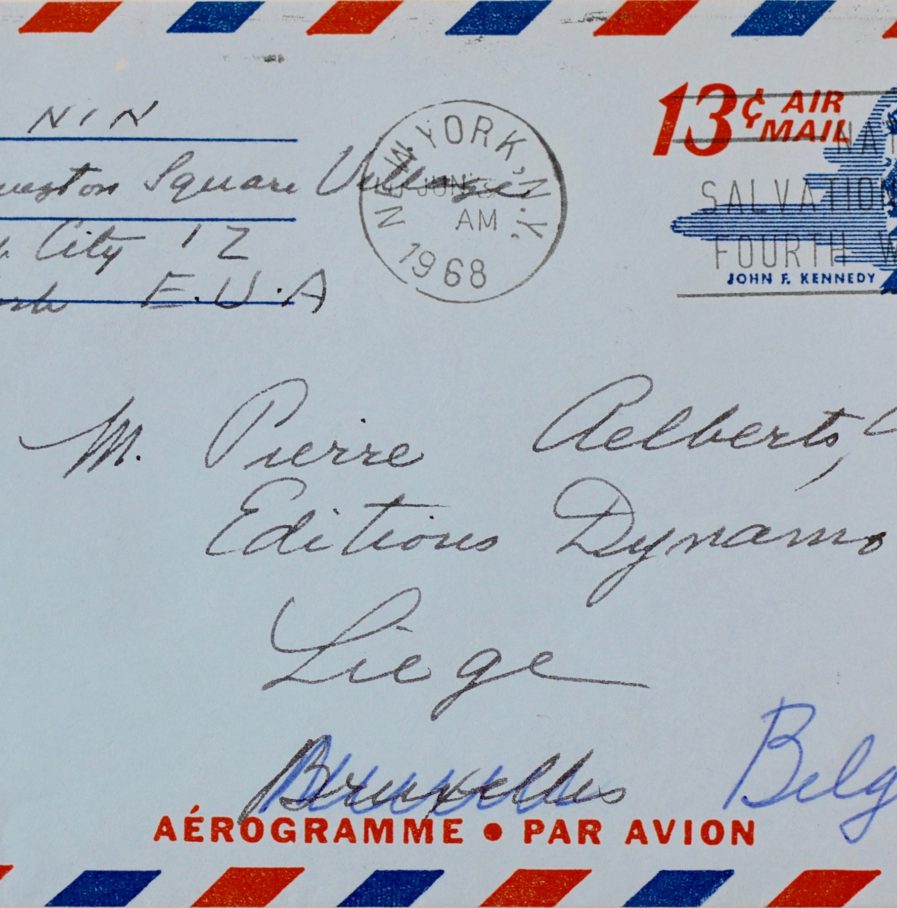 NIN
13¢ AIR
MAIL
Square Village
City 12
E.U.A
NEW YORK, N.Y.
JUN
AM
1968
SALVATION
FOURTH W
JOHN F. KENNEDY
M. Pierre Aelberts,
Editions Dynamo
Liege
Bruxelles
Belg
AÉROGRAMME • PAR AVION